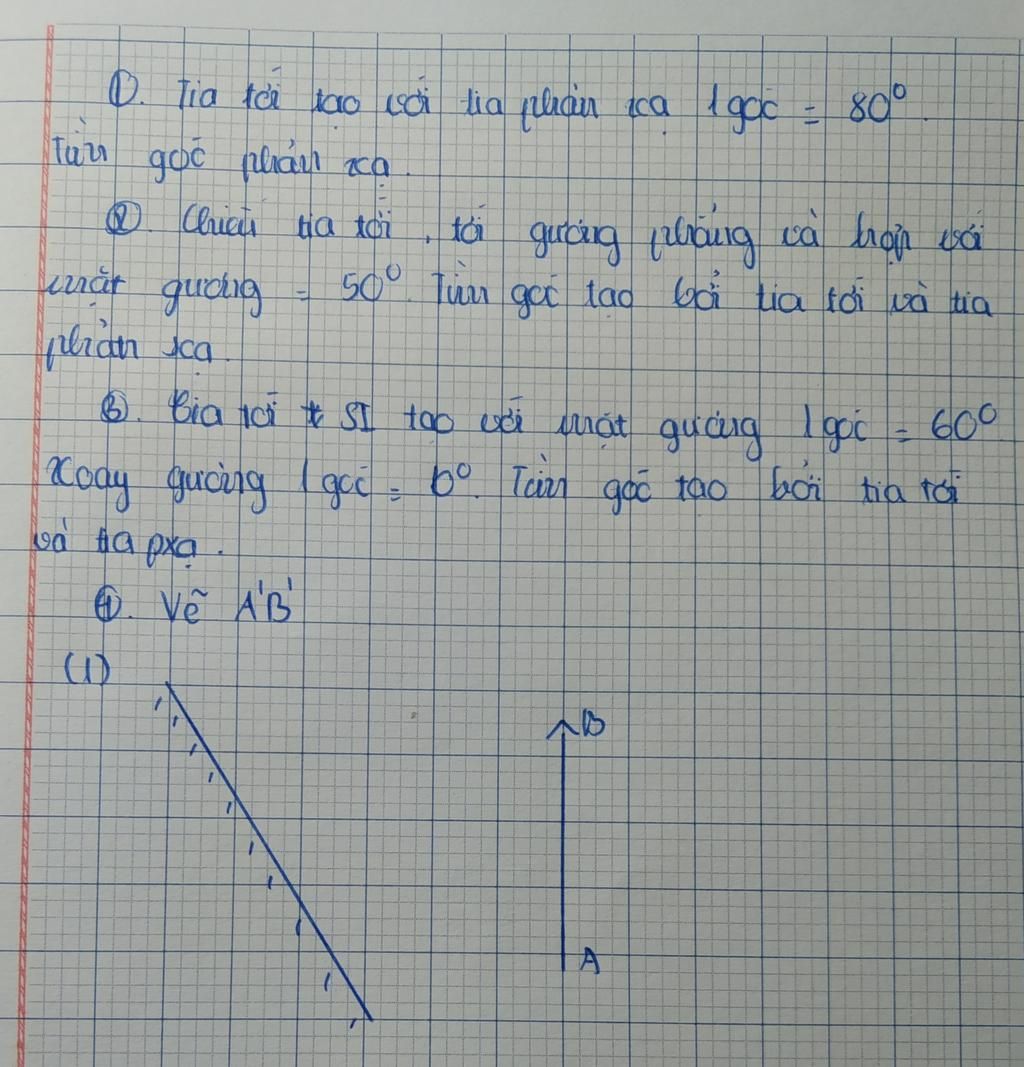 ①. Tia tới tạo với tia phản xạ 1 góc = 80°.
Tìm góc phản xạ.
②. Chiếu tia tới, tới gương phẳng và hợp với
mặt gương = 50°. Tìm góc tạo bởi tia tới và tia
phản xạ.
③. Tia tới SI tạo với mặt gương 1 góc = 60°
Xoay gương 1 góc = 6°. Tìm góc tạo bởi tia tới
và tia pxạ.
④. Vẽ A'B'
(1)
B
A